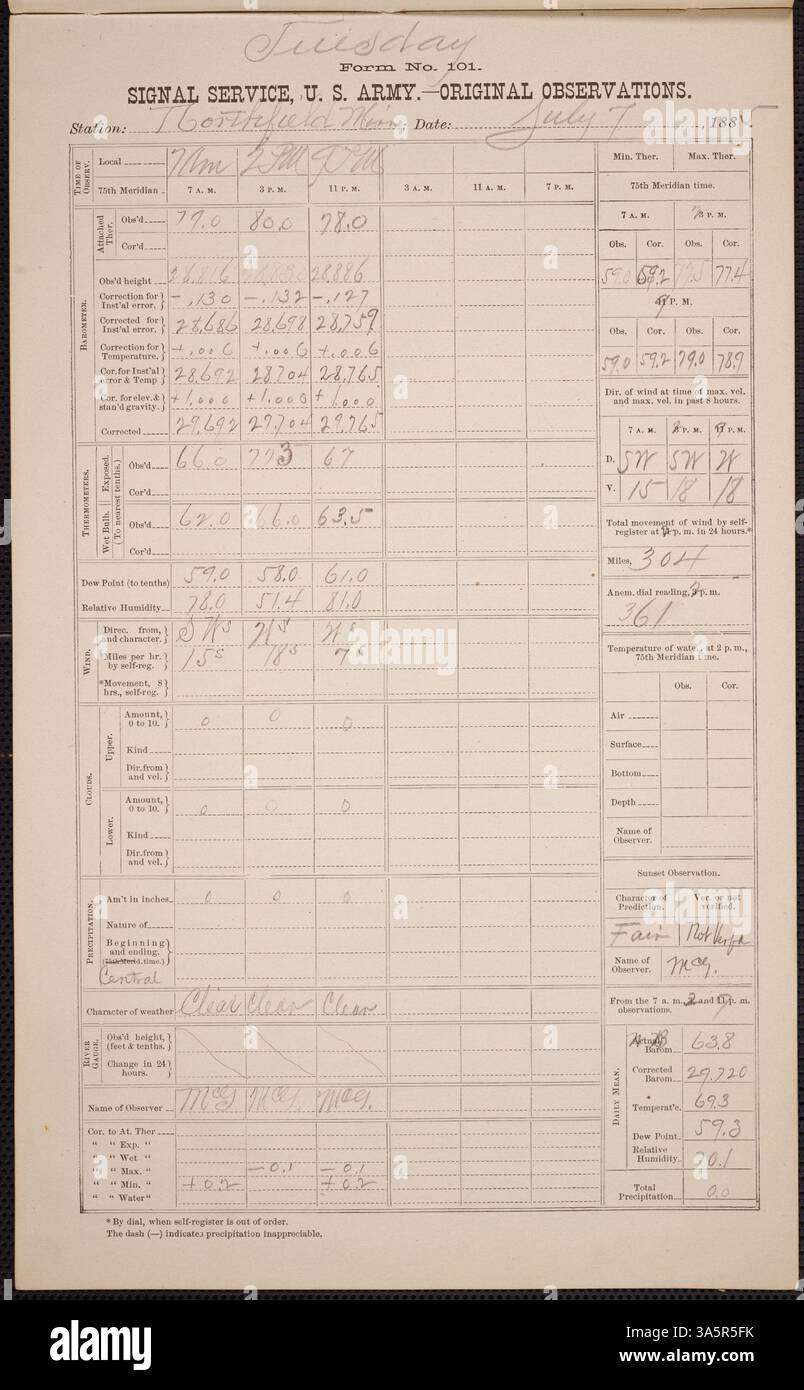 Tuesday
Form No. 101.
SIGNAL SERVICE, U. S. ARMY.—ORIGINAL OBSERVATIONS.
Station: Northfield Minn, Date: July 7, 1885.
TIME OF OBSERV.
Local 7 AM 2 PM 9 PM
75th Meridian 7 A. M. 3 P. M. 11 P. M. 3 A. M. 11 A. M. 7 P. M.
BAROMETER.
Attached Ther.
Obs'd 77.0 80.0 78.0
Cor'd
Obs'd height 28,816 28,830 28,886
Correction for Inst'al error. -.130 -.132 -.127
Corrected for Inst'al error. 28,686 28,698 28,759
Correction for Temperature. +.006 +.006 +.006
Cor. for Inst'al error & Temp 28,692 28,704 28,765
Cor. for elev. & stan'd gravity. +1.000 +1.000 +1.000
Corrected 29,692 29,704 29,765
THERMOMETERS.
(To nearest tenths.)
Exposed.
Obs'd 66.0 77.3 67
Cor'd
Wet Bulb.
Obs'd 62.0 66.0 63.5
Cor'd
Dew Point (to tenths) 59.0 58.0 61.0
Relative Humidity 78.0 51.4 81.0
WIND.
Direc. from, and character. SW s W s W s
Miles per hr. by self-reg. 15 s 18 s 7 s
*Movement, 8 hrs., self-reg.
CLOUDS.
Upper.
Amount, 0 to 10. 0 0 0
Kind
Dir. from and vel.
Lower.
Amount, 0 to 10. 0 0 0
Kind
Dir. from and vel.
PRECIPITATION.
Am't in inches 0 0 0
Nature of
Beginning and ending. (75th Merid. time.)
Central
Character of weather Clear Clear Clear
RIVER GAUGE.
Obs'd height, (feet & tenths.
Change in 24 hours.
Name of Observer McG McG. McG.
Cor. to At. Ther
“ “ Exp. “
“ “ Wet “
“ “ Max. “ -0.1 -0.1
“ “ Min. “ +0.2 +0.2
“ “ Water “
*By dial, when self-register is out of order.
The dash (—) indicates precipitation inappreciable.
Min. Ther. Max. Ther.
75th Meridian time.
7 A. M. 3 P. M.
Obs. Cor. Obs. Cor.
59.0 59.2 77.5 77.4
P. M.
Obs. Cor. Obs. Cor.
59.0 59.2 79.0 78.9
Dir. of wind at time of max. vel. and max. vel. in past 8 hours.
7 A. M. P. M. P. M.
D. SW SW W
V. 15 18 18
Total movement of wind by self-register at p. m. in 24 hours.*
Miles, 304
Anem. dial reading, p. m.
361
Temperature of water at 2 p. m., 75th Meridian time.
Obs. Cor.
Air
Surface
Bottom
Depth
Name of Observer.
Sunset Observation.
Character of Prediction. Ver. or not verified.
Fair Not
Name of Observer. McG.
From the 7 a. m. 2 and 9 p. m. observations.
DAILY MEAN.
Actual Barom 63.8
Corrected Barom 29.720
* Temperat'e. 69.3
Dew Point. 59.3
Relative Humidity. 70.1
Total Precipitation 0.0
alamy
alamy
Image ID: 3A5R5FK
www.alamy.com